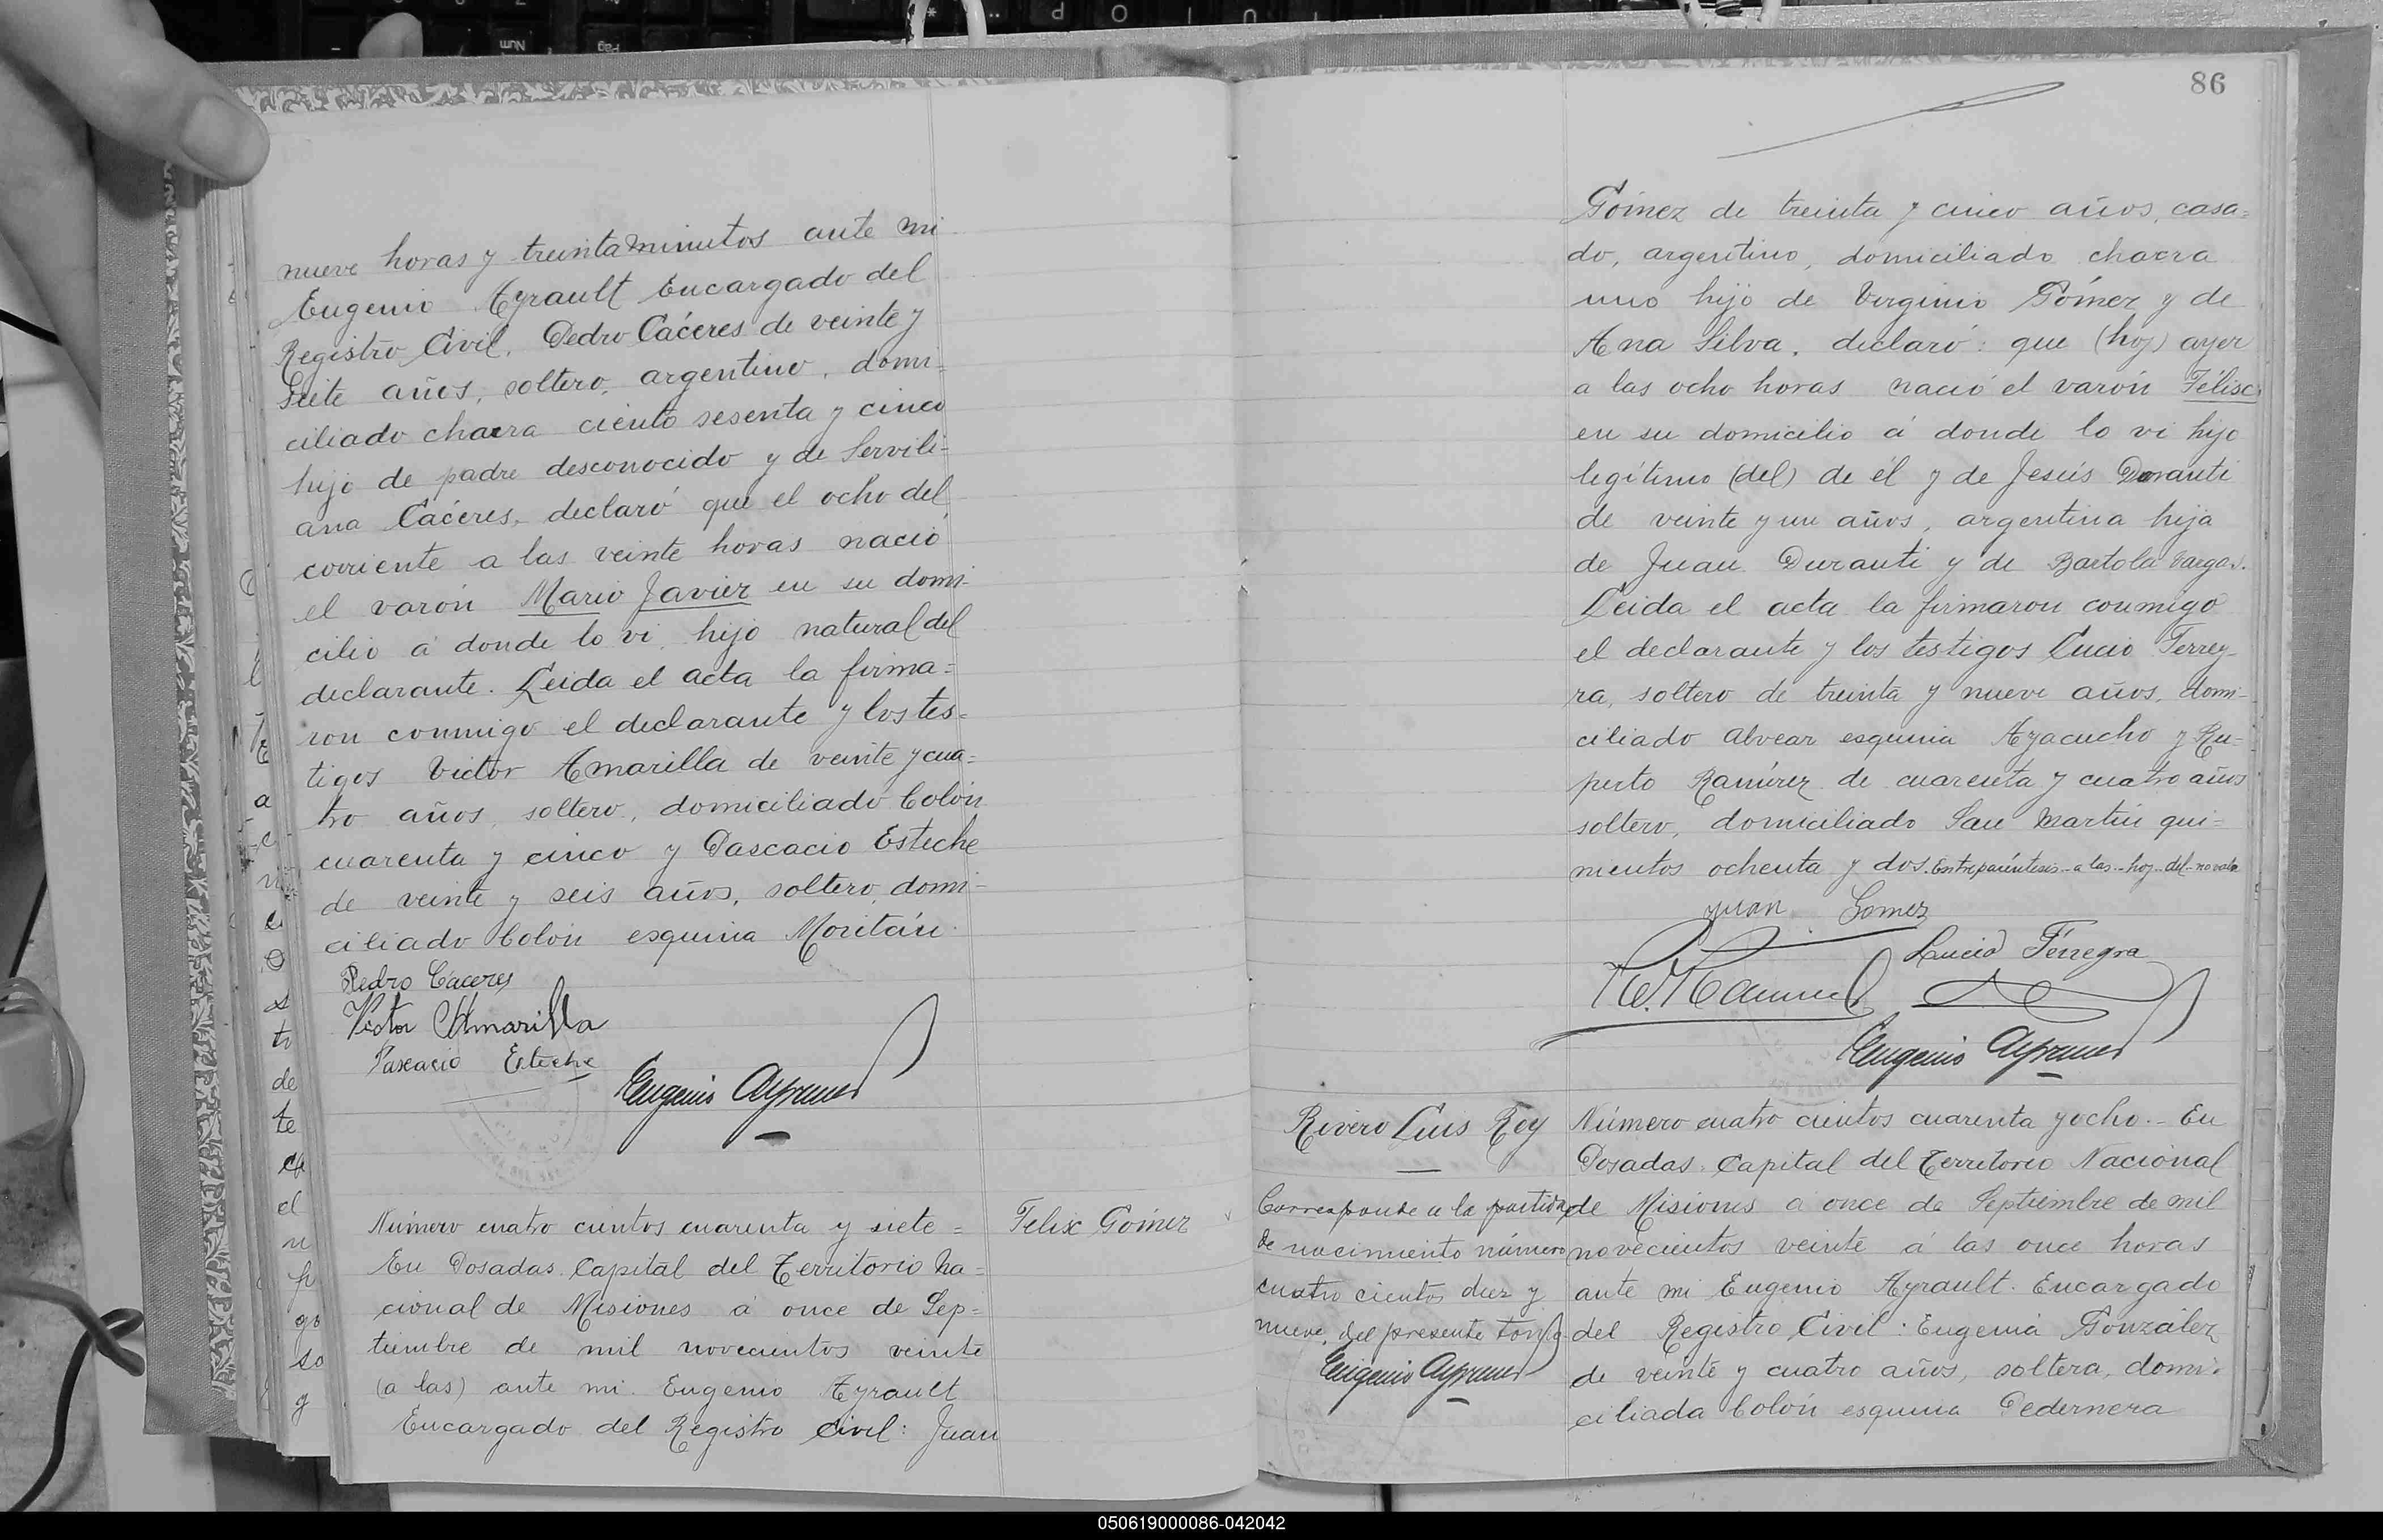 nueve horas y treinta minutos ante mi
Eugenio Ayrault Encargado del
Registro Civil, Pedro Cáceres de veinte y
siete años, soltero, argentino, domi=
ciliado chacra ciento sesenta y cinco
hijo de padre desconocido y de Servili=
ana Cáceres, declaró que el ocho del
corriente a las veinte horas nació
el varón Mario Javier en su domi-
cilio á donde lo vi, hijo natural del
declarante. Leida el acta la firma=
ron conmigo el declarante y los tes=
tigos Victor Amarilla de veinte y cua=
tro años, soltero, domiciliado Colón
cuarenta y cinco y Pascacio Esteche
de veinte y seis años, soltero, domi-
ciliado Colon esquina Moritán.
Pedro Cáceres
Victor Amarilla
Pascacio Esteche
Eugenio Ayrault
Número cuatro cientos cuarenta y siete =
Felix Gómez
En Posadas Capital del Territorio Na=
cional de Misiones á once de Sep=
tiembre de mil novecientos veinte
(a las) ante mi Eugenio Ayrault
Encargado del Registro Civil: Juan
86
Gómez de treinta y cinco años, casa=
do, argentino, domiciliado chacra
uno hijo de Virginio Gómez y de
Ana Silva, declaró: que (hoy) ayer
a las ocho horas nació el varón Félix
en su domicilio á donde lo vi hijo
legítimo (del) de él y de Jesús Duranti
de veinte y un años, argentina hija
de Juan Duranti y de Bartola Vargas.
Leida el acta la firmaron conmigo
el declarante y los testigos Lucio Ferrey-
ra, soltero de treinta y nueve años, domi-
ciliado Alvear esquina Ayacucho y Ru=
perto Ramírez de cuarenta y cuatro años
soltero, domiciliado San Martín qui=
nientos ochenta y dos. Entre paréntesis - a las - hoy - del - no vale
Juan Gomez
Lucio Ferreyra
R. Ramirez
Eugenio Ayrault
Rivero Luis Rey
Corresponde a la partida
de nacimiento número
cuatro cientos diez y
nueve, del presente tomo
Eugenio Ayrault
Número cuatro cientos cuarenta y ocho. - En
Posadas Capital del Territorio Nacional
de Misiones a once de Septiembre de mil
novecientos veinte á las once horas
ante mi Eugenio Ayrault. Encargado
del Registro Civil: Eugenia González
de veinte y cuatro años, soltera, domi-
ciliada Colón esquina Pedernera
050619000086-042042